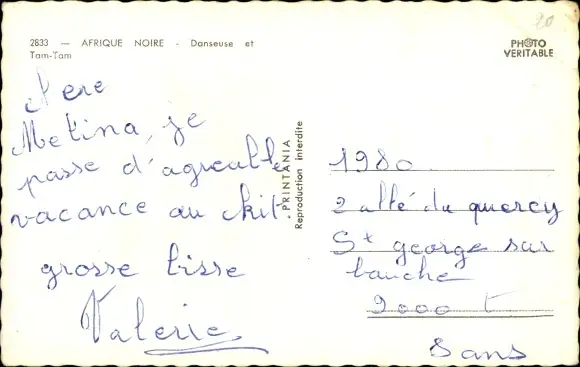 20
2833 — AFRIQUE NOIRE - Danseuse et
Tam-Tam
PHOTO
VERITABLE
Metina, je
passe d'agreable
vacance au chit
grosse bisse
Valerie
PRINTANIA
Reproduction interdite
1980
2 allé du quercy
St george sur
bauche
9000
Sans